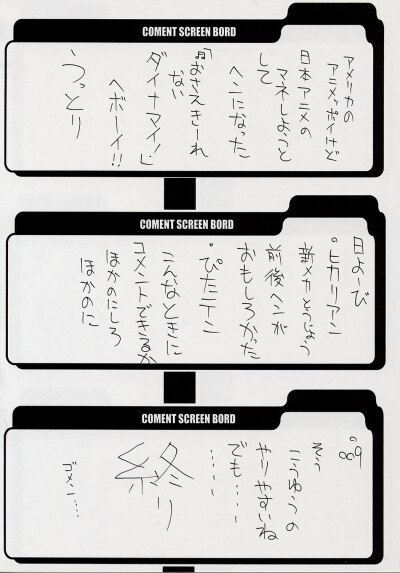 COMENT SCREEN BORD
アメリカの
アニメッポイけど
日本アニメの
マネしようと
して
ヘンになった
「♫おさえきーれ
ない
ダイナマイ!」
ヘボーイ!!
うっとり
COMENT SCREEN BORD
日よーび
°ヒカリアン
新メカとうじょう
前後ヘンが
おもしろかった
°ぴたテン
こんなときに
コメントできるか
ほかのにしろ
ほかのに
COMENT SCREEN BORD
そう
こうゆうの
やりやすいね
でも……
……
終り
ゴメン……